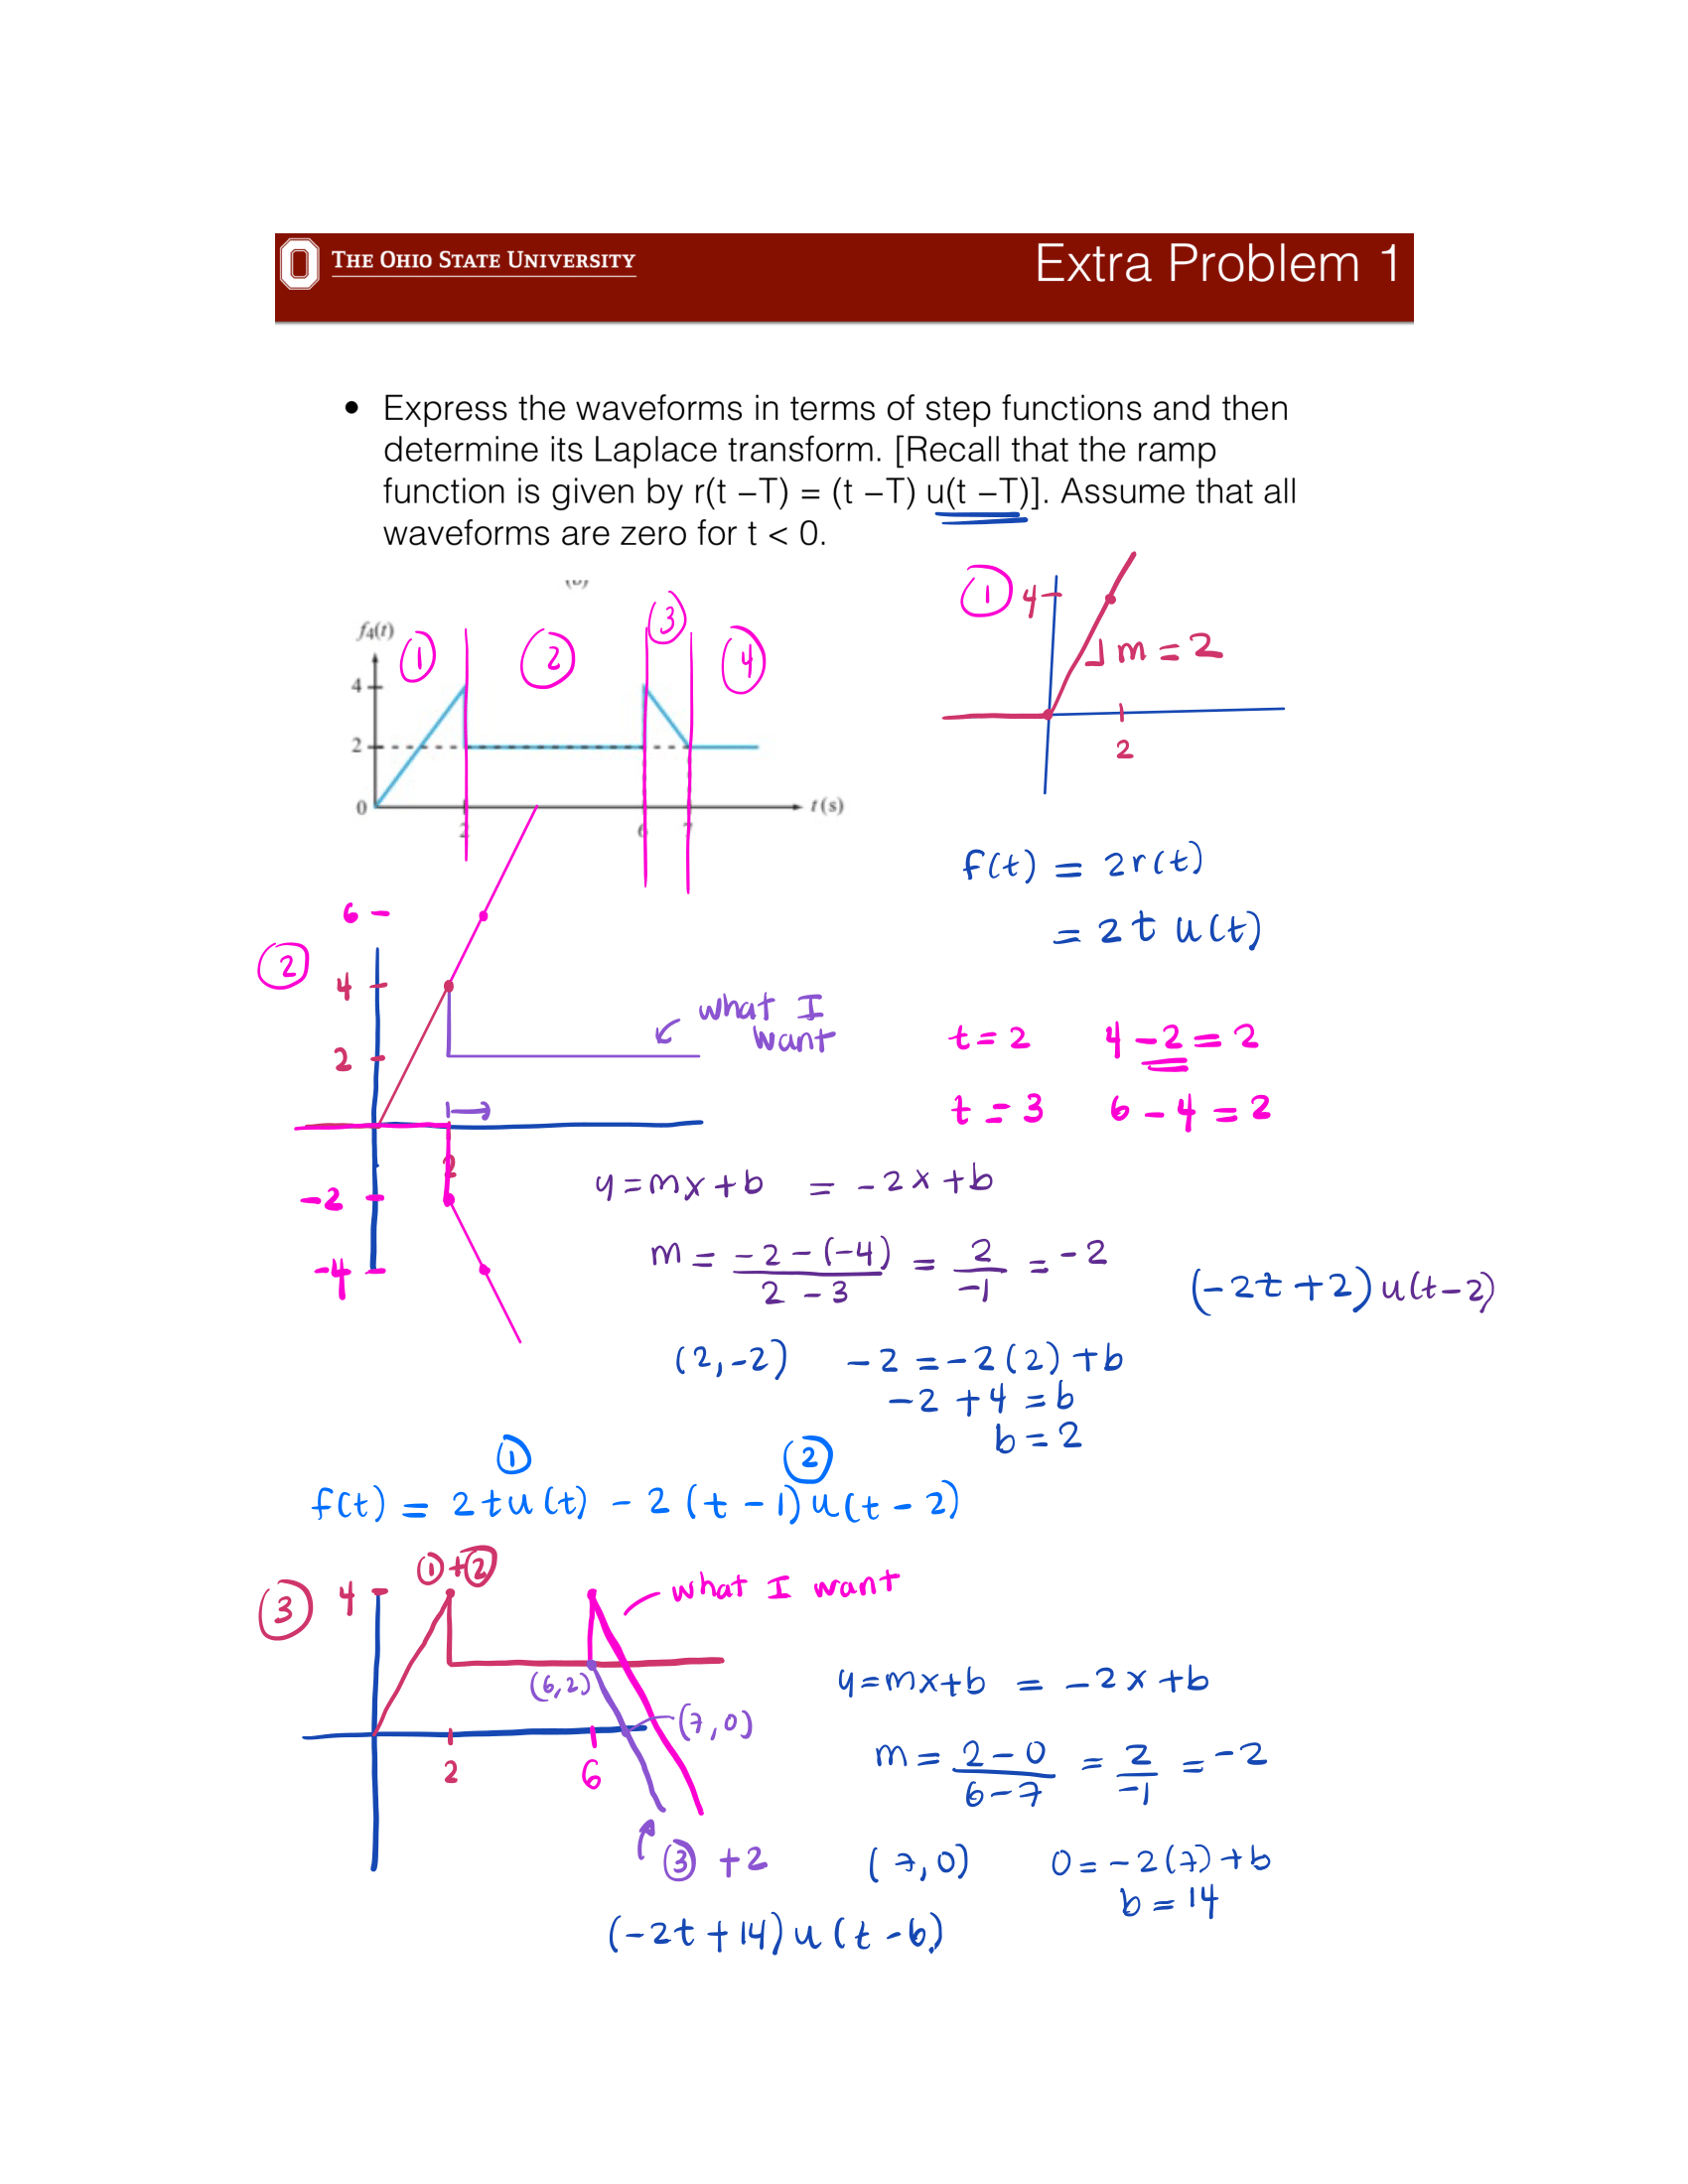 THE OHIO STATE UNIVERSITY
Extra Problem 1
• Express the waveforms in terms of step functions and then
determine its Laplace transform. [Recall that the ramp
function is given by r(t −T) = (t −T) u(t −T)]. Assume that all
waveforms are zero for t < 0.
f₄(t)
① ② ③ ④
4
2
0
2 6 7
t (s)
① 4
m = 2
2
f(t) = 2r(t)
= 2t u(t)
②
6
4
2
2
-2
-4
what I
want
t = 2 4 - 2 = 2
t = 3 6 - 4 = 2
y = mx + b = -2x + b
m = (-2 - (-4))/(2 - 3) = 2/-1 = -2
(-2t + 2) u(t-2)
(2, -2) -2 = -2(2) + b
-2 + 4 = b
b = 2
① ②
f(t) = 2tu(t) - 2(t - 1)u(t - 2)
③ 4
① + ②
what I want
(6,2)
(7,0)
2 6
③ + 2
y = mx + b = -2x + b
m = (2 - 0)/(6 - 7) = 2/-1 = -2
(7, 0) 0 = -2(7) + b
b = 14
(-2t + 14) u(t - 6)